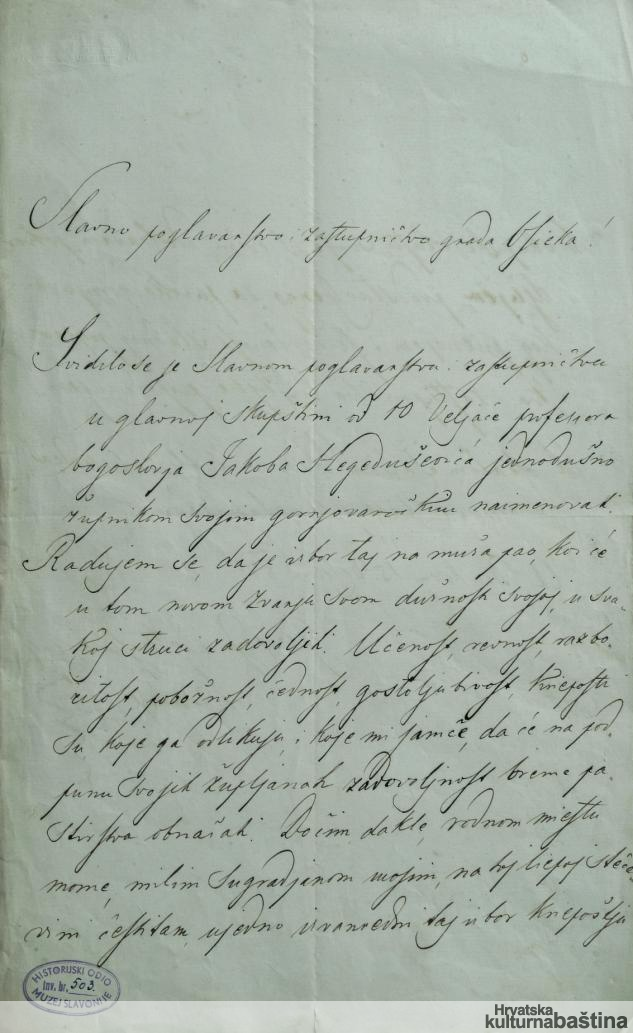 Slavno poglavarstvo i zastupničtvo grada Osieka!
Svidilo se je Slavnom poglavarstvu i zastupničtvu
u glavnoj skupštini od 10 Veljače profesora
bogoslovja Jakoba Hegeduševića jednodušno
župnikom svojim gornjovaroškim naimenovati.
Radujem se, da je izbor taj na muža pao, koi će
u tom novom zvanju svom dužnosti svojoj, u sva-
koj struci zadovoljiti. Učenost, revnost, razbo-
ritost, pobožnost, čednost, gostoljubivost, krieposti
su, koje ga odlikuju, i koje mi jamče, da će na pod-
punu svojih župljanah zadovoljnost breme pa-
stirstva obnašati. Dočim dakle, rodnom miestu
mome, milim sugradjanom mojim, na toj liepoj steče-
vini čestitam, ujedno izvanredni taj izbor
HISTORIJSKI ODIO
Inv. br. 503.
MUZEJ SLAVONIJE
Hrvatska
kulturnabaština